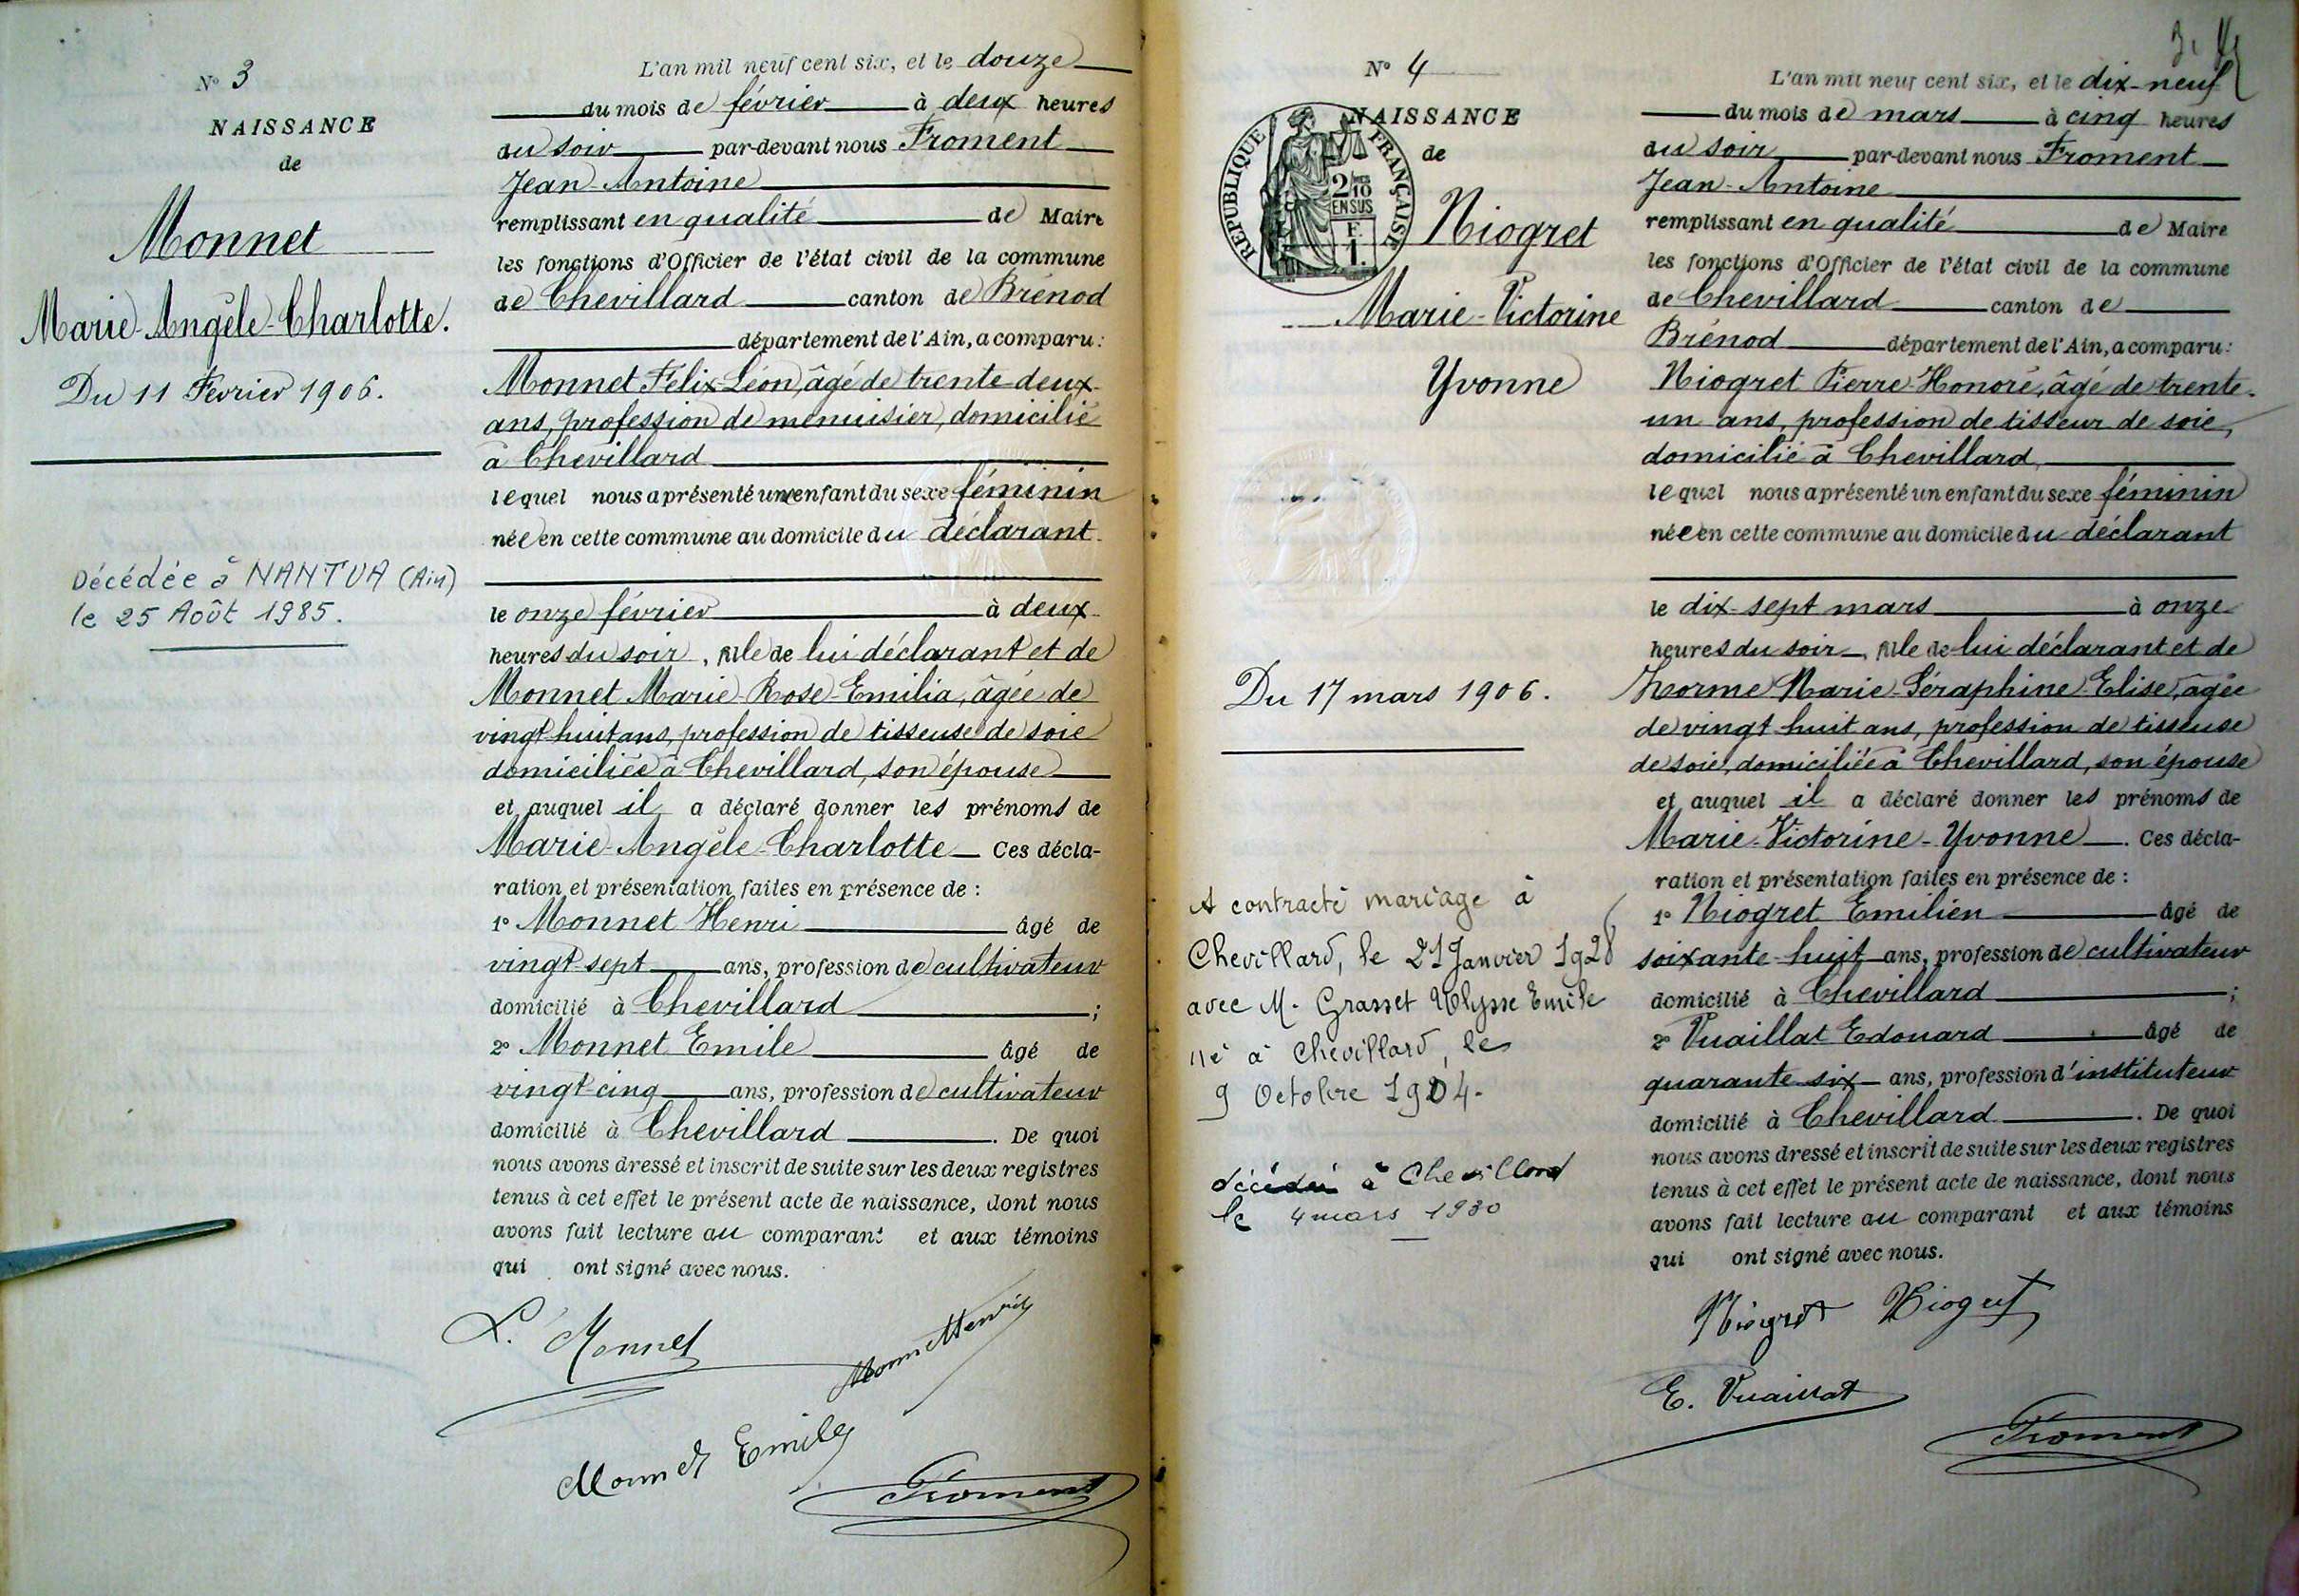 N° 3
NAISSANCE
de
Monnet
Marie-Angèle-Charlotte.
Du 11 Février 1906.
Décédée à NANTUA (Ain)
le 25 Août 1985.
L'an mil neuf cent six, et le douze
du mois de février à deux heures
du soir par-devant nous Froment
Jean-Antoine
remplissant en qualité de Maire
les fonctions d'Officier de l'état civil de la commune
de Chevillard canton de Brénod
département de l'Ain, a comparu:
Monnet Félix-Léon, âgé de trente-deux
ans, profession de menuisier, domicilié
à Chevillard
lequel nous a présenté une enfant du sexe féminin
née en cette commune au domicile du déclarant
le onze février à deux
heures du soir, fille de lui déclarant et de
Monnet Marie-Rose-Emilia, âgée de
vingt huit ans, profession de tisseuse de soie
domiciliée à Chevillard, son épouse
et auquel il a déclaré donner les prénoms de
Marie-Angèle-Charlotte Ces décla-
ration et présentation faites en présence de :
1° Monnet Henri âgé de
vingt-sept ans, profession de cultivateur
domicilié à Chevillard ;
2° Monnet Emile âgé de
vingt-cinq ans, profession de cultivateur
domicilié à Chevillard . De quoi
nous avons dressé et inscrit de suite sur les deux registres
tenus à cet effet le présent acte de naissance, dont nous
avons fait lecture au comparant et aux témoins
qui ont signé avec nous.
L. Monnet
Monnet Henri
Monnet Emile
Froment
N° 4
NAISSANCE
de
RÉPUBLIQUE FRANÇAISE
2/10
EN SUS
F.
1.
Niogret
Marie-Victorine
Yvonne
Du 17 mars 1906.
A contracté mariage à
Chevillard, le 21 Janvier 1928
avec M. Grasset Ulysse Emile
né à Chevillard, le
9 Octobre 1904.
décédée à Chevillard
le 4 mars 1930
L'an mil neuf cent six, et le dix-neuf
du mois de mars à cinq heures
du soir par-devant nous Froment
Jean-Antoine
remplissant en qualité de Maire
les fonctions d'Officier de l'état civil de la commune
de Chevillard canton de
Brénod département de l'Ain, a comparu:
Niogret Pierre-Honoré, âgé de trente-
un ans, profession de tisseur de soie,
domicilié à Chevillard
lequel nous a présenté un enfant du sexe féminin
née en cette commune au domicile du déclarant
le dix-sept mars à onze
heures du soir, fille de lui déclarant et de
Marie-Séraphine-Elise, âgée
de vingt huit ans, profession de tisseuse
de soie, domiciliée à Chevillard, son épouse
et auquel il a déclaré donner les prénoms de
Marie-Victorine-Yvonne . Ces décla-
ration et présentation faites en présence de :
1° Niogret Emilien âgé de
soixante-huit ans, profession de cultivateur
domicilié à Chevillard ;
2° Vuaillat Edouard âgé de
quarante-six ans, profession d'instituteur
domicilié à Chevillard . De quoi
nous avons dressé et inscrit de suite sur les deux registres
tenus à cet effet le présent acte de naissance, dont nous
avons fait lecture au comparant et aux témoins
qui ont signé avec nous.
Niogret Niogret
E. Vuaillat
Froment